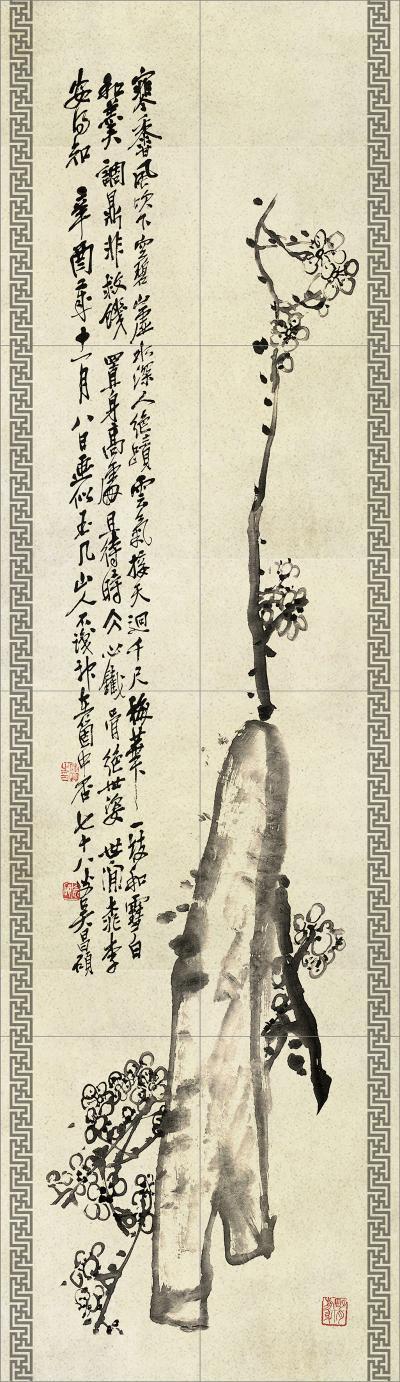 寒香風吹下空碧山虛水深人絕蹟雲氣接天迥千尺梅華一枝和雪白
和羹調鼎非救饑置身高處且待時冬心鐵骨絕世姿世間桃李
安得知 辛酉年十一月八日畫似玉几山人不識神在箇中否七十八叟吳昌碩